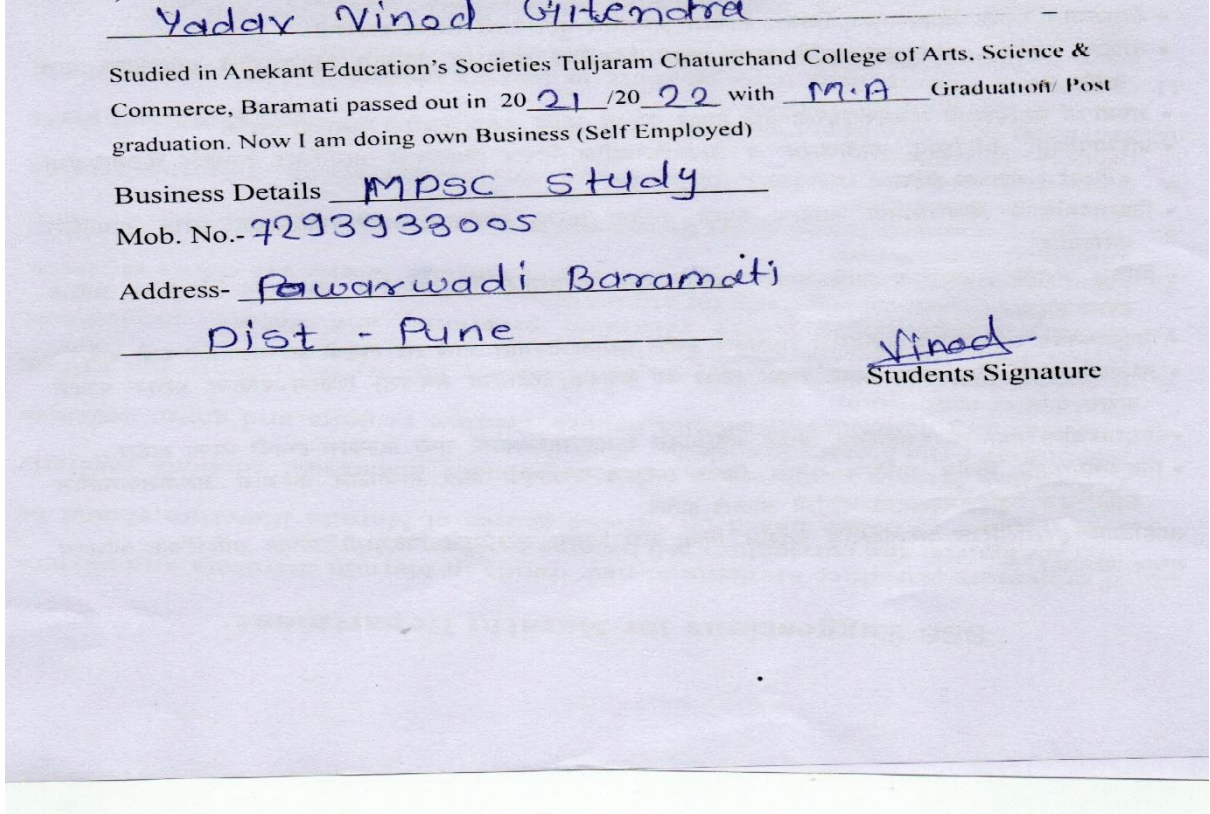 Yadav Vinod Gitendra
Studied in Anekant Education's Societies Tuljaram Chaturchand College of Arts. Science &
Commerce, Baramati passed out in 20 21 /20 22 with M.A Graduation/ Post
graduation. Now I am doing own Business (Self Employed)
Business Details MPSC study
Mob. No.- 7293933005
Address- Pawarwadi Baramati
Dist - Pune
Vinod
Students Signature